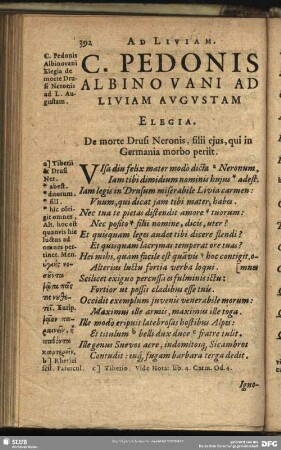 392 AD LIVIAM.
C. Pedonis
Albinovani
Elegia de
morte Dru-
si Neronis
ad L. Au-
gustam.
C. PEDONIS
ALBINOVANI AD
LIVIAM AVGVSTAM
ELEGIA.
De morte Drusi Neronis, filii ejus, qui in
Germania morbo periit.
VIsa diu felix mater modo dicta Neronum,
Iam tibi dimidium nominis hujus adest.
Iam legis in Drusum miserabile Livia carmen:
Vnum, qui dicat jam tibi mater, habes.
Nec tua te pietas distendit amore tuorum:
Nec posito fili nomine, dicis, uter?
Et quisquam leges audet tibi dicere flendi?
Et quisquam lacrymas temperat ore tuas?
Hei mihi, quam facile est quamvis hoc contigit, o-
Alterius luctu fortia verba loqui. [mnes
Scilicet exiguo percussa es fulminis ictu:
Fortior ut possis cladibus esse tuis.
Occidit exemplum juveni venerabile morum:
Maximus ille armis, maximus ille toga.
Ille modo eripuit latebrosas hostibus Alpes:
Et titulum belli dux duce fratre tulit.
Ille genus Suevos acre, indomitosq, Sicambros
Contudit: inq, fugam barbara terga dedit.
a] Tiberii
& Drusi
Ner.
* abest.
* duorum.
* fili.
b] Rhetici
scil. Patercul. c] Tiberio. Vide Nota: lib. 4. Carm. Od. 4.
Igno-
SLUB
DFG